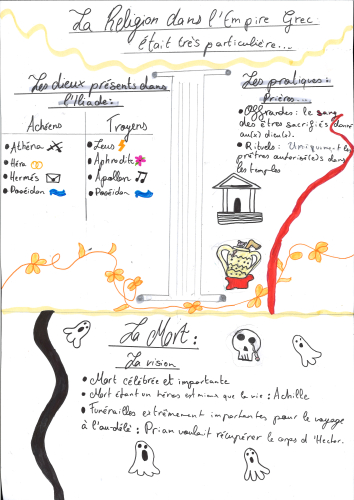 La Religion dans l'Empire Grec
était très particulière...
Les dieux présents dans
l'Iliade:
Achéens
Troyens
• Athéna
• Héra
• Hermès
• Poséidon
• Zeus
• Aphrodite
• Apollon
• Poséidon
Les pratiques:
Prières...
• Offrandes: le sang
des êtres sacrifiés donné
au(x) dieu(x).
• Rituels: Uniquement les
prêtres autorisé(e)s dans
les temples
La Mort:
La vision
• Mort célébrée et importante
• Mort étant un héros est mieux que la vie: Achille
• Funérailles extrêmement importantes pour le voyage
à l'au-délé: Prian voulait récupérer le corps d'Hector.